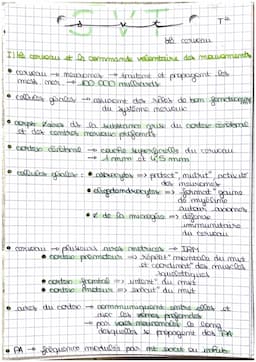 SVT
T^le
le cerveau
I] le cerveau et la commande volontaire des mouvements
• cerveau → neurones → traitent et propagent les
mess nerv → 100 000 milliards
• cellules gliales → assurent des rôles de bon
du système nerveux
de la substance grise du cortex cérébral
et des centres nerveux profonds
• cortex cérébral → couche superficielle du cerveau
→ 1 mm et 4,5 mm
• cellules gliales : • astrocytes → protect°, nutrit°, activité
des neurones
• oligodendrocytes → format° gaine
de myéline
autour axones
• de la microglie → défense
immunitaire
du cerveau
• cerveau → plusieurs aires motrices → IRM
• cortex prémoteur → répétit° mentale du mvt
et coordinat° des muscles
squelettiques
• cortex frontal → intent° du mvt
• cortex moteur → exécut° du mvt
• aires du cortex → communiquent entre elles et
avec les zones profondes
→ par voies neuronales le long
desquelles se propagent des PA
• PA → fréquence modulés par